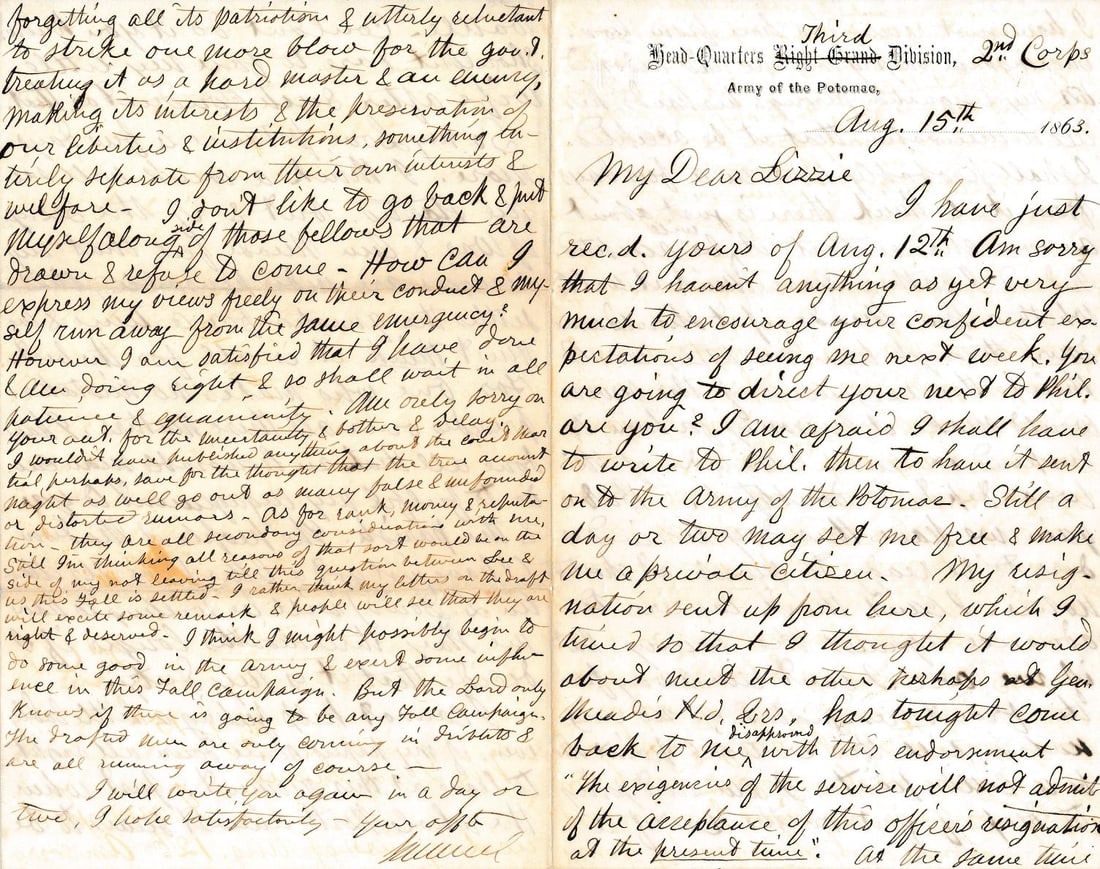 forgetting all its patriotism & utterly reluctant
to strike one more blow for the gov.t.
treating it as a hard master & an enemy,
making its interests & the preservation of
our liberties & institutions, something en-
tirely separate from their own interests &
welfare - I don't like to go back & put
myself along side of those fellows that are
drawn & refuse to come - How can I
express my views freely on their conduct & my-
self run away from the same emergency?
However I am satisfied that I have done
& am doing right & so shall wait in all
patience & equanimity. Am only sorry on
your act. for the uncertainty & bother & delay.
I wouldn't have published anything about the court mar
tial perhaps, save for the thought that the true account
might as well go out as many false & unfounded
or distorted rumors - As for rank, money & reputa-
tion - they are all secondary considerations with me,
Still I'm thinking all reasons of that sort would be on the
side of my not leaving till this question between Lee &
us this Fall is settled - I rather think my letters on the draft
will excite some remark & people will see that they are
right & deserved - I think I might possibly begin to
do some good in the army & exert some influ-
ence in this Fall Campaign. But the Lord only
knows if there is going to be any Fall Campaign.
The drafted men are only coming in driblets &
are all running away of course -
I will write you again in a day or
two, I hope satisfactorily - Your afft
Samuel
Head-Quarters Right Grand Third Division, 2nd Corps
Army of the Potomac,
Aug. 15th 1863.
My Dear Lizzie
I have just
rec.d. yours of Aug. 12th Am sorry
that I havent anything as yet very
much to encourage your confident ex-
pectations of seeing me next week. You
are going to direct your next to Phil.
are you? I am afraid I shall have
to write to Phil. then to have it sent
on to the Army of the Potomac - Still a
day or two may set me free & make
me a private citizen. My resig-
nation sent up from here, which I
timed so that I thought it would
about meet the other perhaps at Gen.
Meade's Hd. Qrs., has tonight come
back to me disapproved with this endorsement
"The exigencies of the service will not admit
of the acceptance of this officer's resignation
at the present time". At the same time